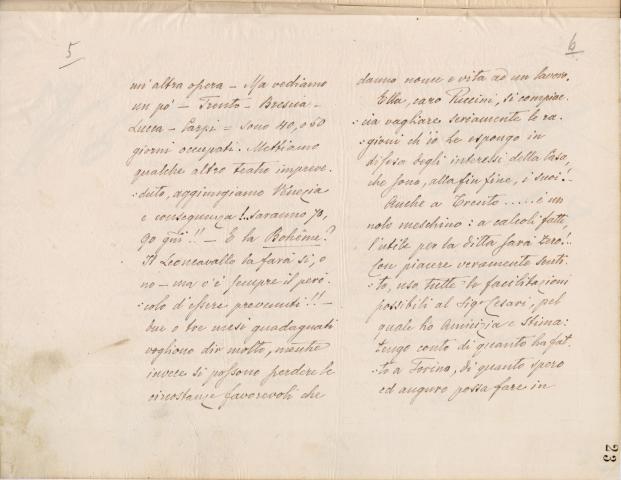 5
mi' altra opera – Ma vediamo
un pó – Trento – Brescia –
Lucca – Carpi = sono 40, o 50
giorni occupati. Mettiamo
qualche altro teatro impreve-
:duto, aggiungiamo Venezia
e conseguenza!.. saranno 70,
90 gni!! – E la Bohême?
Il Leoncavallo la farà si, o
no – ma v'è sempre il peri-
:colo d'essere prevenuti!! –
due o tre mesi guadagnati
vogliono dir molto, mentre
invece si possono perdere le
circostanze favorevoli che
6
danno nome e vita ad un lavoro.
Ella, caro Puccini, si compiac-
:cia vagliare seriamente le ra-
:gioni ch'io le espongo in
difesa degli interessi della Casa,
che sono, alla fin fine, i suoi!..
Anche a Trento ..... è un
nolo meschino: a calcoli fatti,
l'utile per la ditta sarà zero!..
Con piacere veramente senti-
:to, uso tutte le facilitazioni
possibili al Sigr Cesari, pel
quale ho amicizia e stima:
tengo conto di quanto ha fat-
:to a Torino, di quanto spero
ed auguro possa fare in
23